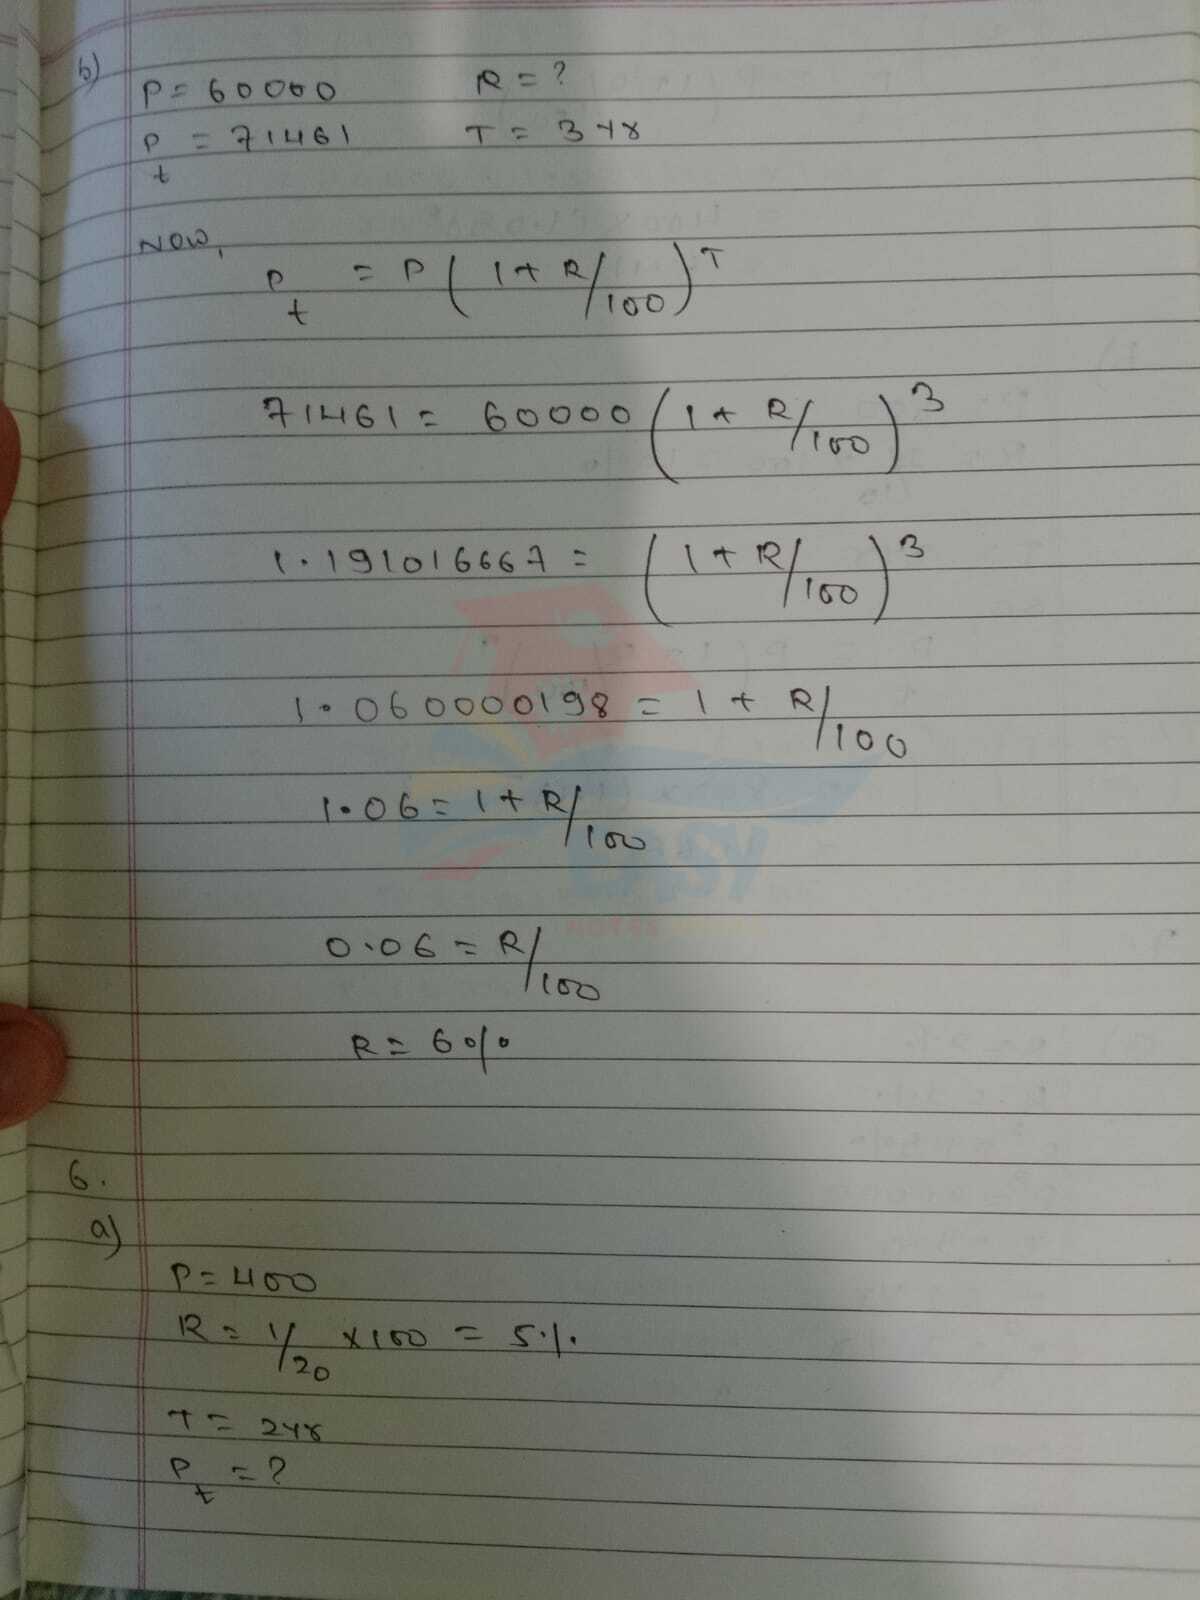 b)
P = 60000 R = ?
Pt = 71461 T = 3 yr
Now,
Pt = P ( 1 + R/100 )^T
71461 = 60000 ( 1 + R/100 )^3
1.191016667 = ( 1 + R/100 )^3
1.060000198 = 1 + R/100
1.06 = 1 + R/100
EASY
NOTES
0.06 = R/100
R = 6%
6.
a)
P = 400
R = 1/20 × 100 = 5%
T = 2 yr
Pt = ?